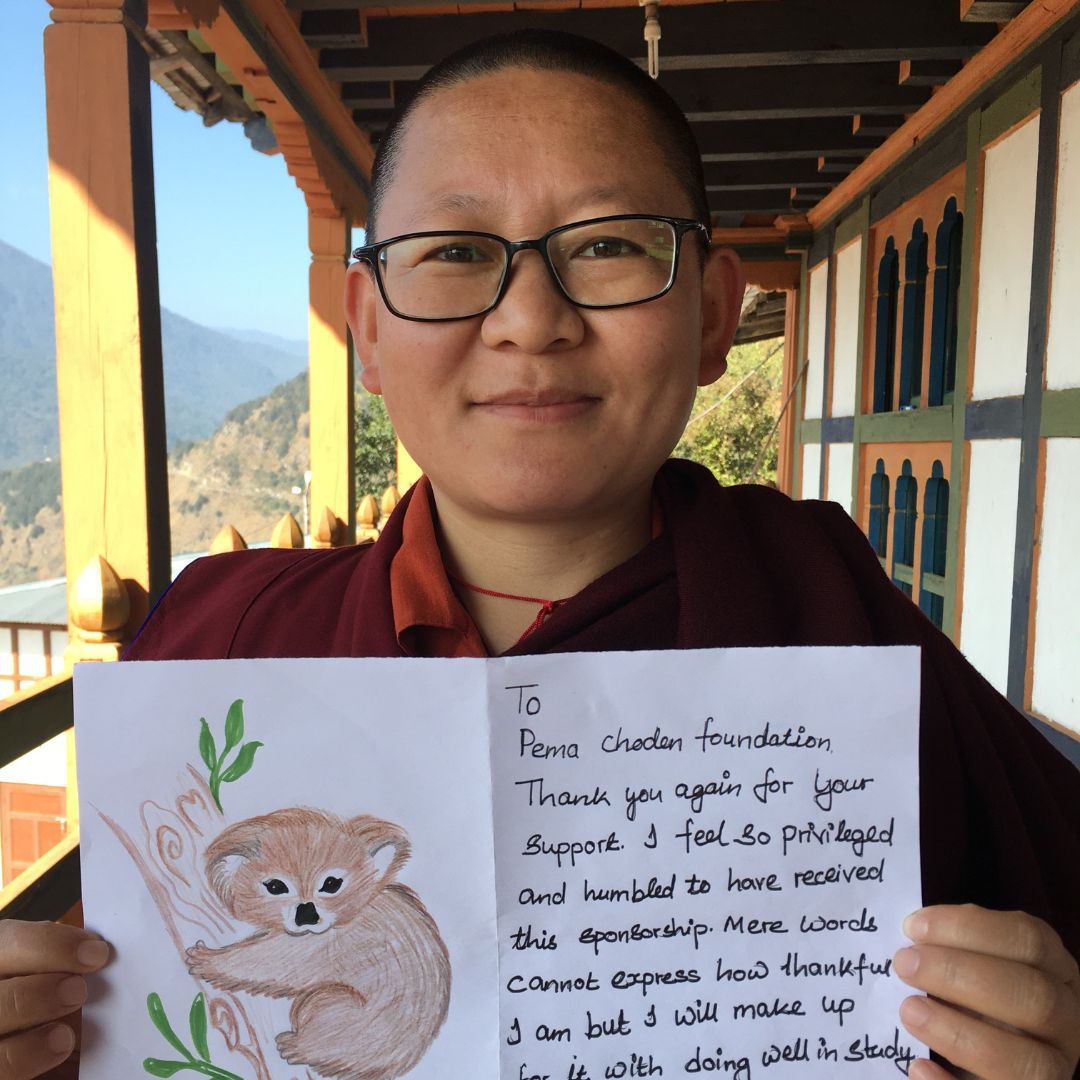 To
Pema choden foundation.
Thank you again for your
support. I feel so privileged
and humbled to have received
this sponsorship. Mere words
cannot express how thankful
I am but I will make up
for it with doing well in study